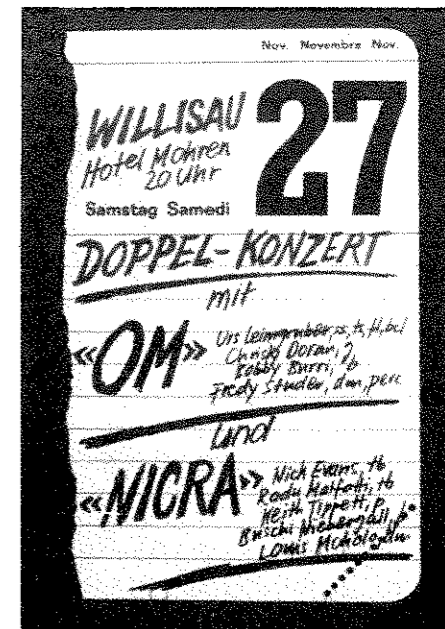 Nov. Novembre Nov.
WILLISAU 27
Hotel Mohren
20 Uhr
Samstag Samedi
DOPPEL-KONZERT
mit
«OM» Urs Leimgruber, ss, ts, fl, bcl
Christy Doran, g
Bobby Burri, b
Fredy Studer, dm, perc
und
«NICRA» Nick Evans, tb
Radu Malfatti, tb
Keith Tippett, p
Buschi Niebergall, b
Louis Moholo, dm